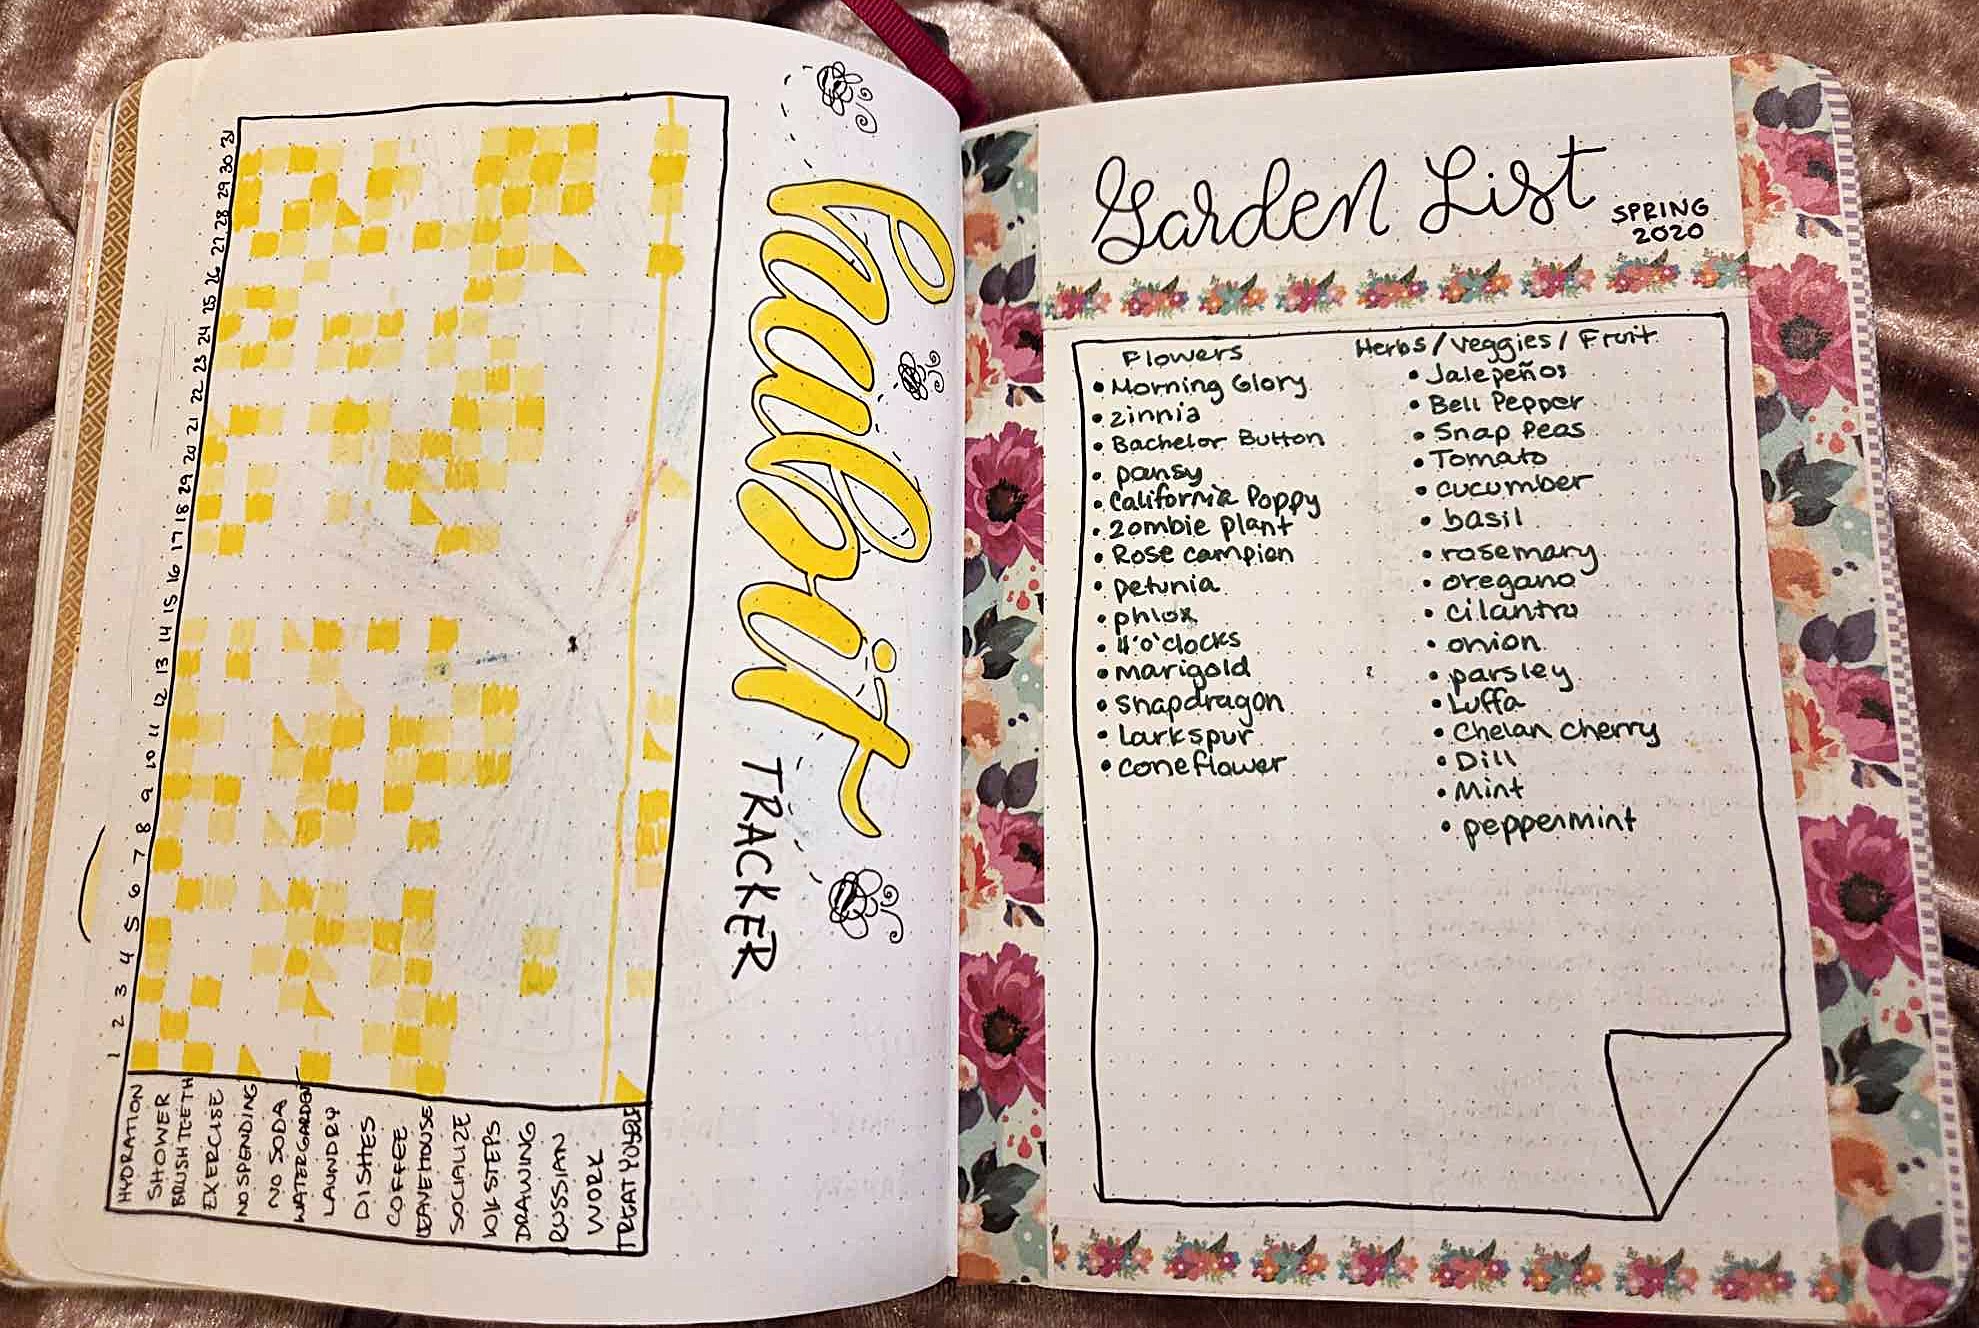 habit
TRACKER
1 2 3 4 5 6 7 8 9 10 11 12 13 14 15 16 17 18 29 20 21 22 23 24 25 26 27 28 29 30 31
HYDRATION
SHOWER
BRUSH TEETH
EXERCISE
NO SPENDING
NO SODA
WATER GARDEN
LAUNDRY
DISHES
COFFEE
LEAVE HOUSE
SOCIALIZE
10K STEPS
DRAWING
RUSSIAN
WORK
TREAT YOSELF
Garden List
SPRING
2020
Flowers
• Morning Glory
• zinnia
• Bachelor Button
• pansy
• California Poppy
• zombie plant
• Rose campion
• petunia
• phlox
• 4'o'clocks
• marigold
• snapdragon
• Larkspur
• coneflower
Herbs/Veggies/Fruit
• Jalepeños
• Bell Pepper
• Snap Peas
• Tomato
• cucumber
• basil
• rosemary
• oregano
• cilantro
• onion
• parsley
• Luffa
• Chelan cherry
• Dill
• Mint
• peppermint